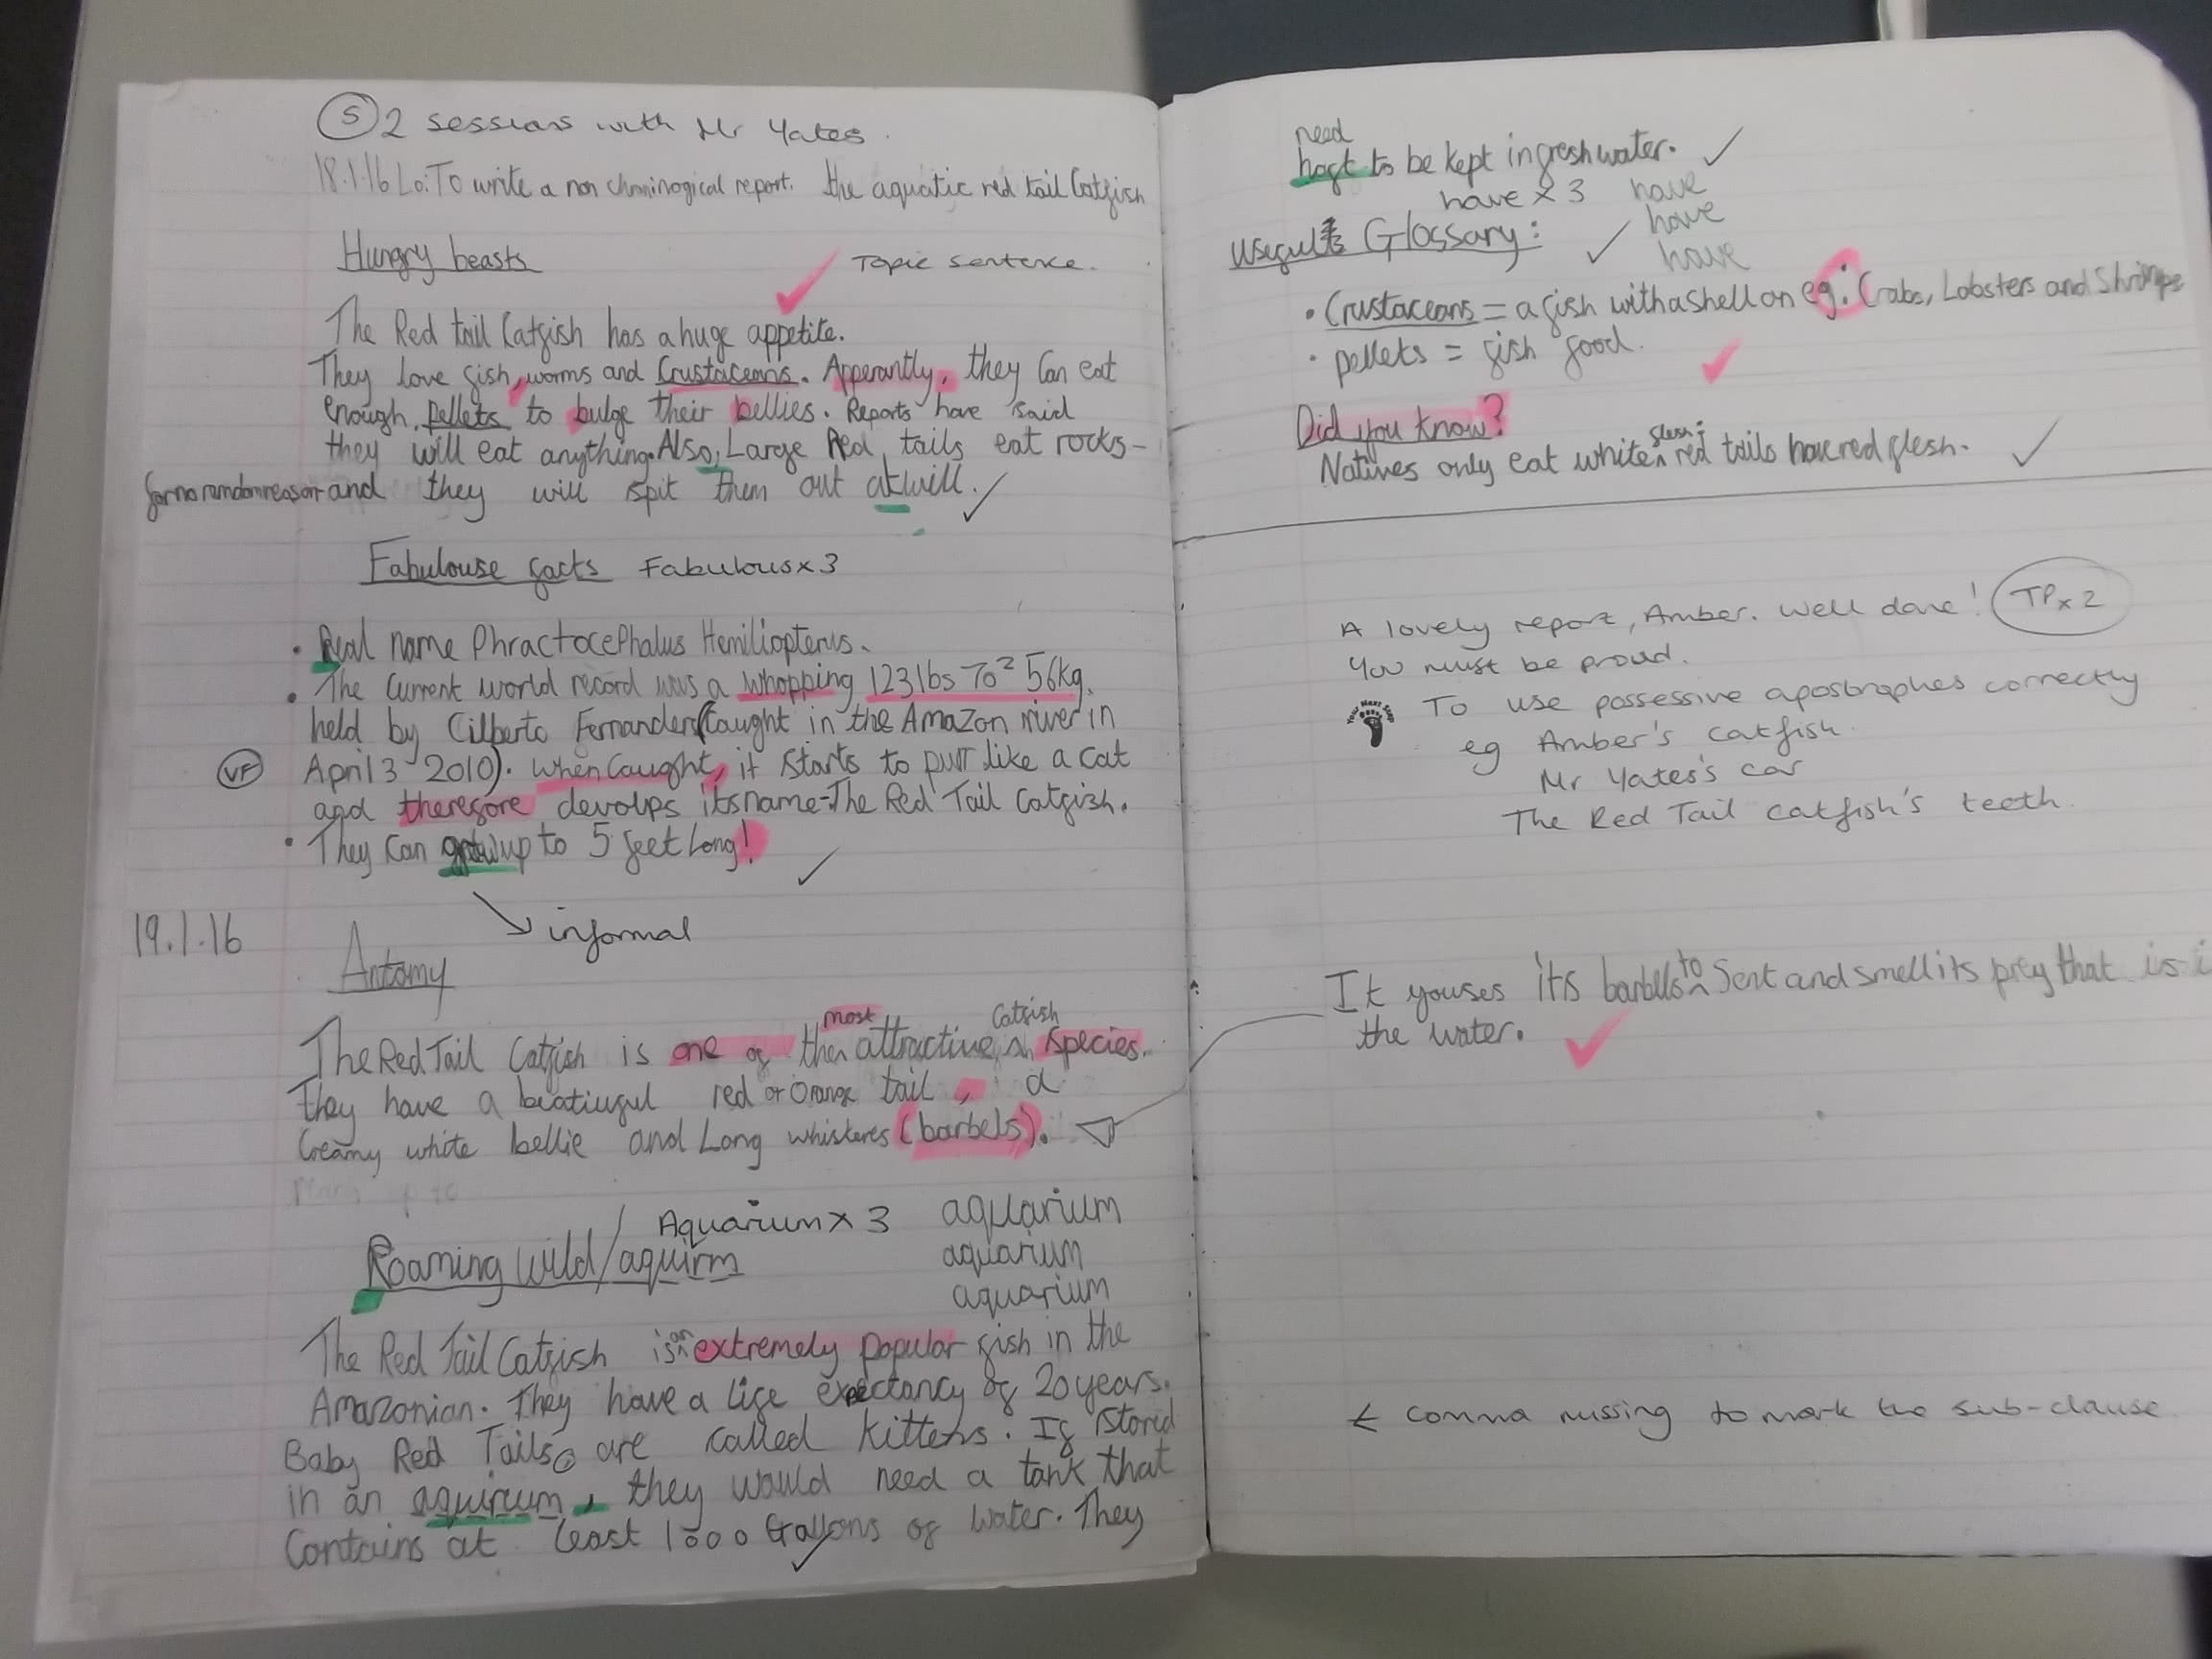 S 2 sessions with Mr Yates.
18.1.16 Lo: To write a non chroninogical report. the aquatic red tail Catfish
Hungry beasts
Topic sentence.
The Red tail Catfish has a huge appetite.
They love fish, worms and Crustaceans. Apperantly, they can eat
enough pellets to bulge their bellies. Reports have said
they will eat anything. Also, Large Red tails eat rocks-
for no random reason-and they will spit them out at will.
Fabulouse facts Fabulous x 3
• Real name Phractocephalus Hemiliopterus.
• The Current world record was a whopping 123lbs 70² 56kg,
held by Cilberto Fernanders (Caught in the Amazon river in
VF April 3 2010). When Caught, it starts to purr like a cat
and therefore devolps its name-The Red Tail Catfish.
• They Can grow up to 5 feet Long!
informal
19.1.16
Antomy
most Catfish
The Red Tail Catfish is one of then attractive species.
They have a beatiuful red or Orange tail, a
Creamy white bellie and Long whiskeres (barbels).
Aquarium x 3 aquarium
Roaming wild/aquirm aquarium
aquarium
The Red Tail Catfish is an extremely popular fish in the
Amazonian. They have a life expectancy of 20 years.
Baby Red Tails are called kittens. If stored
in an aquirium, they would need a tank that
Contains at least 1000 Gallons of water. They
need
haft to be kept in freshwater.
have x 3 have
have
have
Useful Glossary:
• Crustaceans = a fish with a shell on eg: Crabs, Lobsters and Shrimps
• pellets = fish food.
Did you know?
Natives only eat white flesh- red tails have red flesh.
A lovely report, Amber. Well done! TP x 2
You must be proud.
Your Next Step To use possessive apostrophes correctly
eg Amber's catfish
Mr Yates's car
The Red Tail catfish's teeth.
It youses its barbells to Sent and smell its prey that is i
the water.
← comma missing to mark the sub-clause